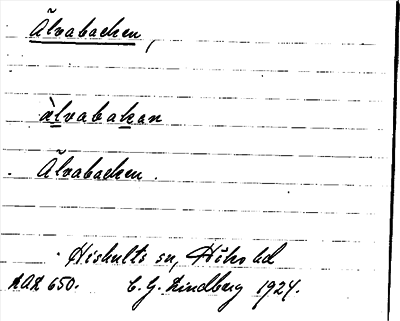 Älvabacken,
àlvabakan
Älvabacken.
Hishults sn, Höks hd
AAL 650. C. G. Lindberg 1924.